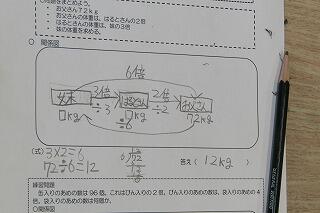 ○問題をまとめよう。
・ お父さん72kg
・ お父さんの体重は、はるとさんの2倍
・ はるとさんの体重は、妹の3倍
・ 妹の体重を求める。
○ 関係図
6倍
妹 3倍 はるとさん 2倍 お父さん
÷3 ÷2
□kg □kg 72kg
÷6
(式) 3×2=6
72÷6=12
答え( 12kg )
練習問題
缶入りのあめの数は96個、これはびん入りの2倍。びん入りのあめの数は、袋入りのあめの4
倍。袋入りのあめの数は何個か。
○関係図